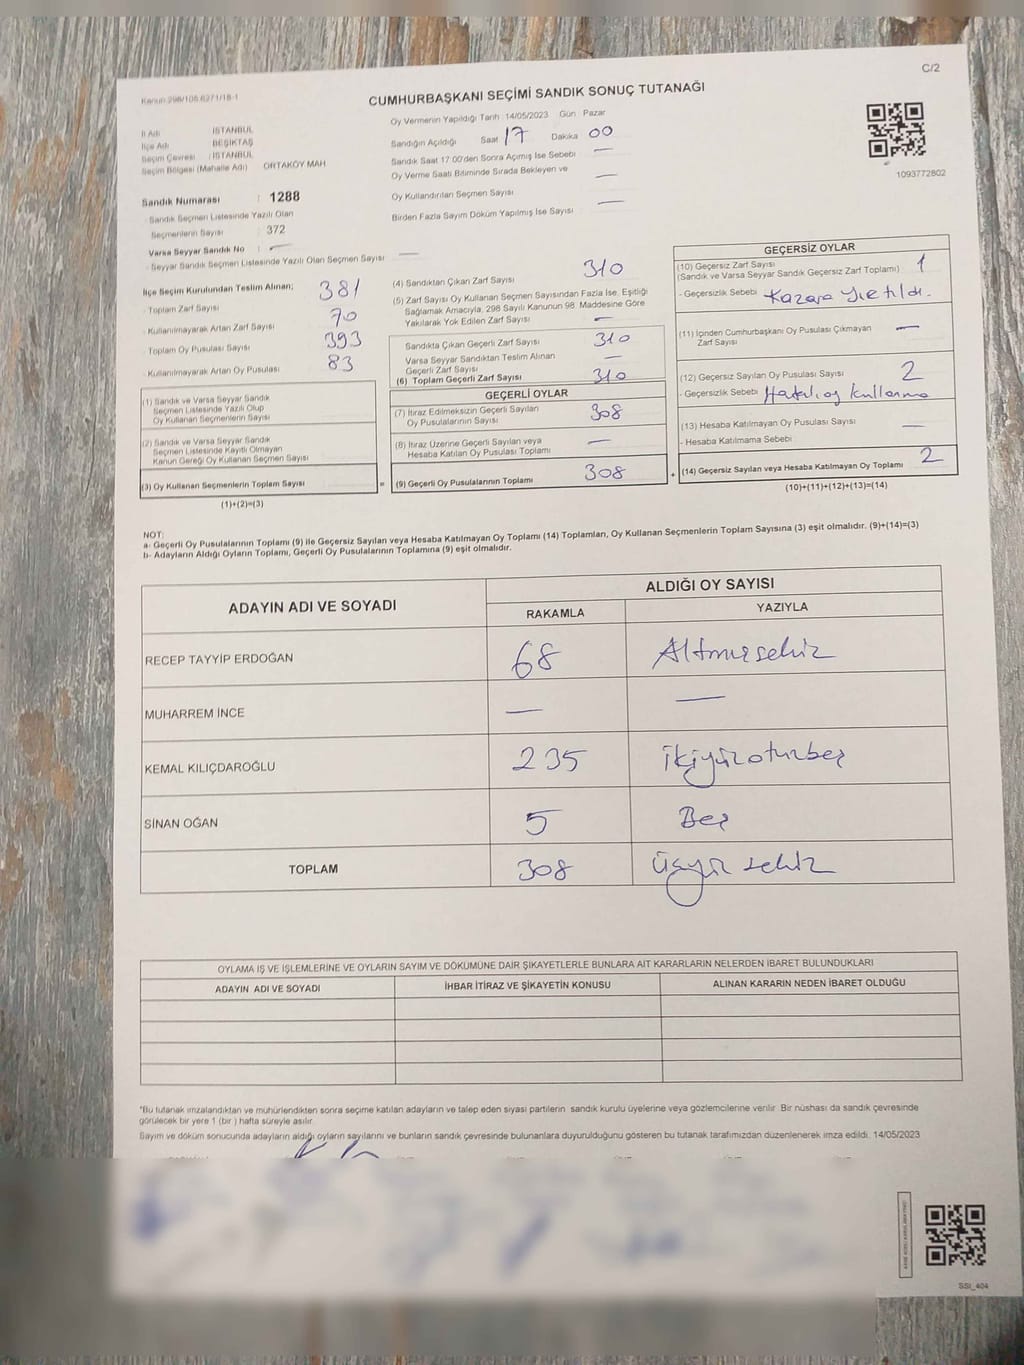 C/2
Kanun:298/105.6271/18-1
CUMHURBAŞKANI SEÇİMİ SANDIK SONUÇ TUTANAĞI
İl Adı İSTANBUL
İlçe Adı BEŞİKTAŞ
Seçim Çevresi : İSTANBUL
Seçim Bölgesi (Mahalle Adı) ORTAKÖY MAH
Oy Vermenin Yapıldığı Tarih 14/05/2023 Gün Pazar
Sandığın Açıldığı Saat 17 Dakika 00
Sandık Saat 17:00'den Sonra Açılmış İse Sebebi —
Oy Verme Saati Bitiminde Sırada Bekleyen ve
Oy Kullandırılan Seçmen Sayısı —
Birden Fazla Sayım Döküm Yapılmış İse Sayısı —
1093772802
Sandık Numarası : 1288
Sandık Seçmen Listesinde Yazılı Olan
Seçmenlerin Sayısı 372
Varsa Seyyar Sandık No : —
- Seyyar Sandık Seçmen Listesinde Yazılı Olan Seçmen Sayısı —
İlçe Seçim Kurulundan Teslim Alınan;
- Toplam Zarf Sayısı 381
- Kullanılmayarak Artan Zarf Sayısı 70
Toplam Oy Pusulası Sayısı 393
- Kullanılmayarak Artan Oy Pusulası 83
(1) Sandık ve Varsa Seyyar Sandık
Seçmen Listesinde Yazılı Olup
Oy Kullanan Seçmenlerin Sayısı
(2) Sandık ve Varsa Seyyar Sandık
Seçmen Listesinde Kayıtlı Olmayan
Kanun Gereği Oy Kullanan Seçmen Sayısı
(3) Oy Kullanan Seçmenlerin Toplam Sayısı =
(1)+(2)=(3)
(4) Sandıktan Çıkan Zarf Sayısı 310
(5) Zarf Sayısı Oy Kullanan Seçmen Sayısından Fazla İse, Eşitliği
Sağlamak Amacıyla, 298 Sayılı Kanunun 98. Maddesine Göre
Yakılarak Yok Edilen Zarf Sayısı —
Sandıkta Çıkan Geçerli Zarf Sayısı 310
Varsa Seyyar Sandıktan Teslim Alınan
Geçerli Zarf Sayısı —
(6) Toplam Geçerli Zarf Sayısı 310
GEÇERLİ OYLAR
(7) İtiraz Edilmeksizin Geçerli Sayılan
Oy Pusulalarının Sayısı 308
(8) İtiraz Üzerine Geçerli Sayılan veya
Hesaba Katılan Oy Pusulası Toplamı —
(9) Geçerli Oy Pusulalarının Toplamı 308 +
GEÇERSİZ OYLAR
(10) Geçersiz Zarf Sayısı
(Sandık ve Varsa Seyyar Sandık Geçersiz Zarf Toplamı) 1
- Geçersizlik Sebebi Kazara yırtıldı.
(11) İçinden Cumhurbaşkanı Oy Pusulası Çıkmayan
Zarf Sayısı —
(12) Geçersiz Sayılan Oy Pusulası Sayısı 2
- Geçersizlik Sebebi Hatalı oy kullanma
(13) Hesaba Katılmayan Oy Pusulası Sayısı —
- Hesaba Katılmama Sebebi
(14) Geçersiz Sayılan veya Hesaba Katılmayan Oy Toplamı 2
(10)+(11)+(12)+(13)=(14)
NOT:
a- Geçerli Oy Pusulalarının Toplamı (9) ile Geçersiz Sayılan veya Hesaba Katılmayan Oy Toplamı (14) Toplamları, Oy Kullanan Seçmenlerin Toplam Sayısına (3) eşit olmalıdır. (9)+(14)=(3)
b- Adayların Aldığı Oyların Toplamı, Geçerli Oy Pusulalarının Toplamına (9) eşit olmalıdır.
ADAYIN ADI VE SOYADI ALDIĞI OY SAYISI
RAKAMLA YAZIYLA
RECEP TAYYİP ERDOĞAN 68 Altmışsekiz
MUHARREM İNCE — —
KEMAL KILIÇDAROĞLU 235 ikiyüzotuzbeş
SİNAN OĞAN 5 Beş
TOPLAM 308 üçyüz sekiz
OYLAMA İŞ VE İŞLEMLERİNE VE OYLARIN SAYIM VE DÖKÜMÜNE DAİR ŞİKAYETLERLE BUNLARA AİT KARARLARIN NELERDEN İBARET BULUNDUKLARI
ADAYIN ADI VE SOYADI İHBAR İTİRAZ VE ŞİKAYETİN KONUSU ALINAN KARARIN NEDEN İBARET OLDUĞU
*Bu tutanak imzalandıktan ve mühürlendikten sonra seçime katılan adayların ve talep eden siyasi partilerin sandık kurulu üyelerine veya gözlemcilerine verilir. Bir nüshası da sandık çevresinde
görülecek bir yere 1 (bir ) hafta süreyle asılır.
Sayım ve döküm sonucunda adayların aldığı oyların sayılarını ve bunların sandık çevresinde bulunanlara duyurulduğunu gösteren bu tutanak tarafımızdan düzenlenerek imza edildi. 14/05/2023
SSI_404